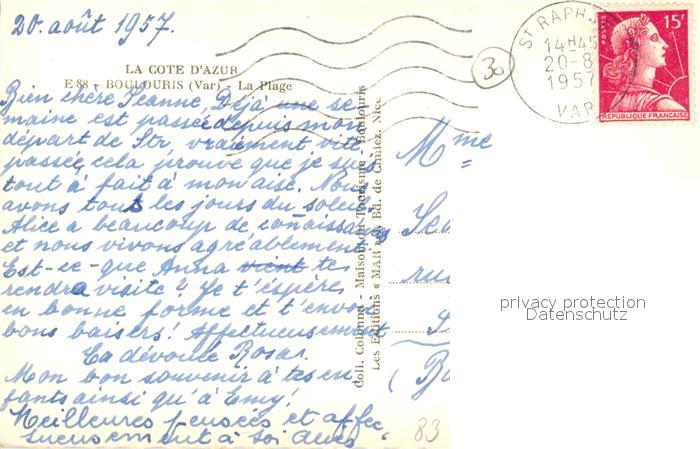 20. août 1957.
LA COTE D'AZUR
E 88 - BOULOURIS (Var) - La Plage
Bien chère Jeanne, Déjà une se
maine est passée depuis mon
départ de Str, vraiment vite
passée, cela prouve que je suis
tout à fait à mon aise. Nous
avons tous les jours du soleil,
Alice a beaucoup de connaissances
et nous vivons agréablement.
Est-ce-que Anna vient te
rendra visite? Je t'espère
en bonne forme et t'envoie
bons baisers! Affectueusement
Ta dévouée Rosa.
Mon bon souvenir à tes en
fants ainsi qu'à Emy!
Meilleures pensées et affec-
tueusement à
Coll. Colonna - Maison du Tourisme - Boulouris
Les Editions « MAR » Ed. de Cimiez, Nice
30
ST RAPHA
14H45
20-8
1957
VAR
POSTES
15F
REPUBLIQUE FRANÇAISE
Mme
rue
privacy protection
Datenschutz
83